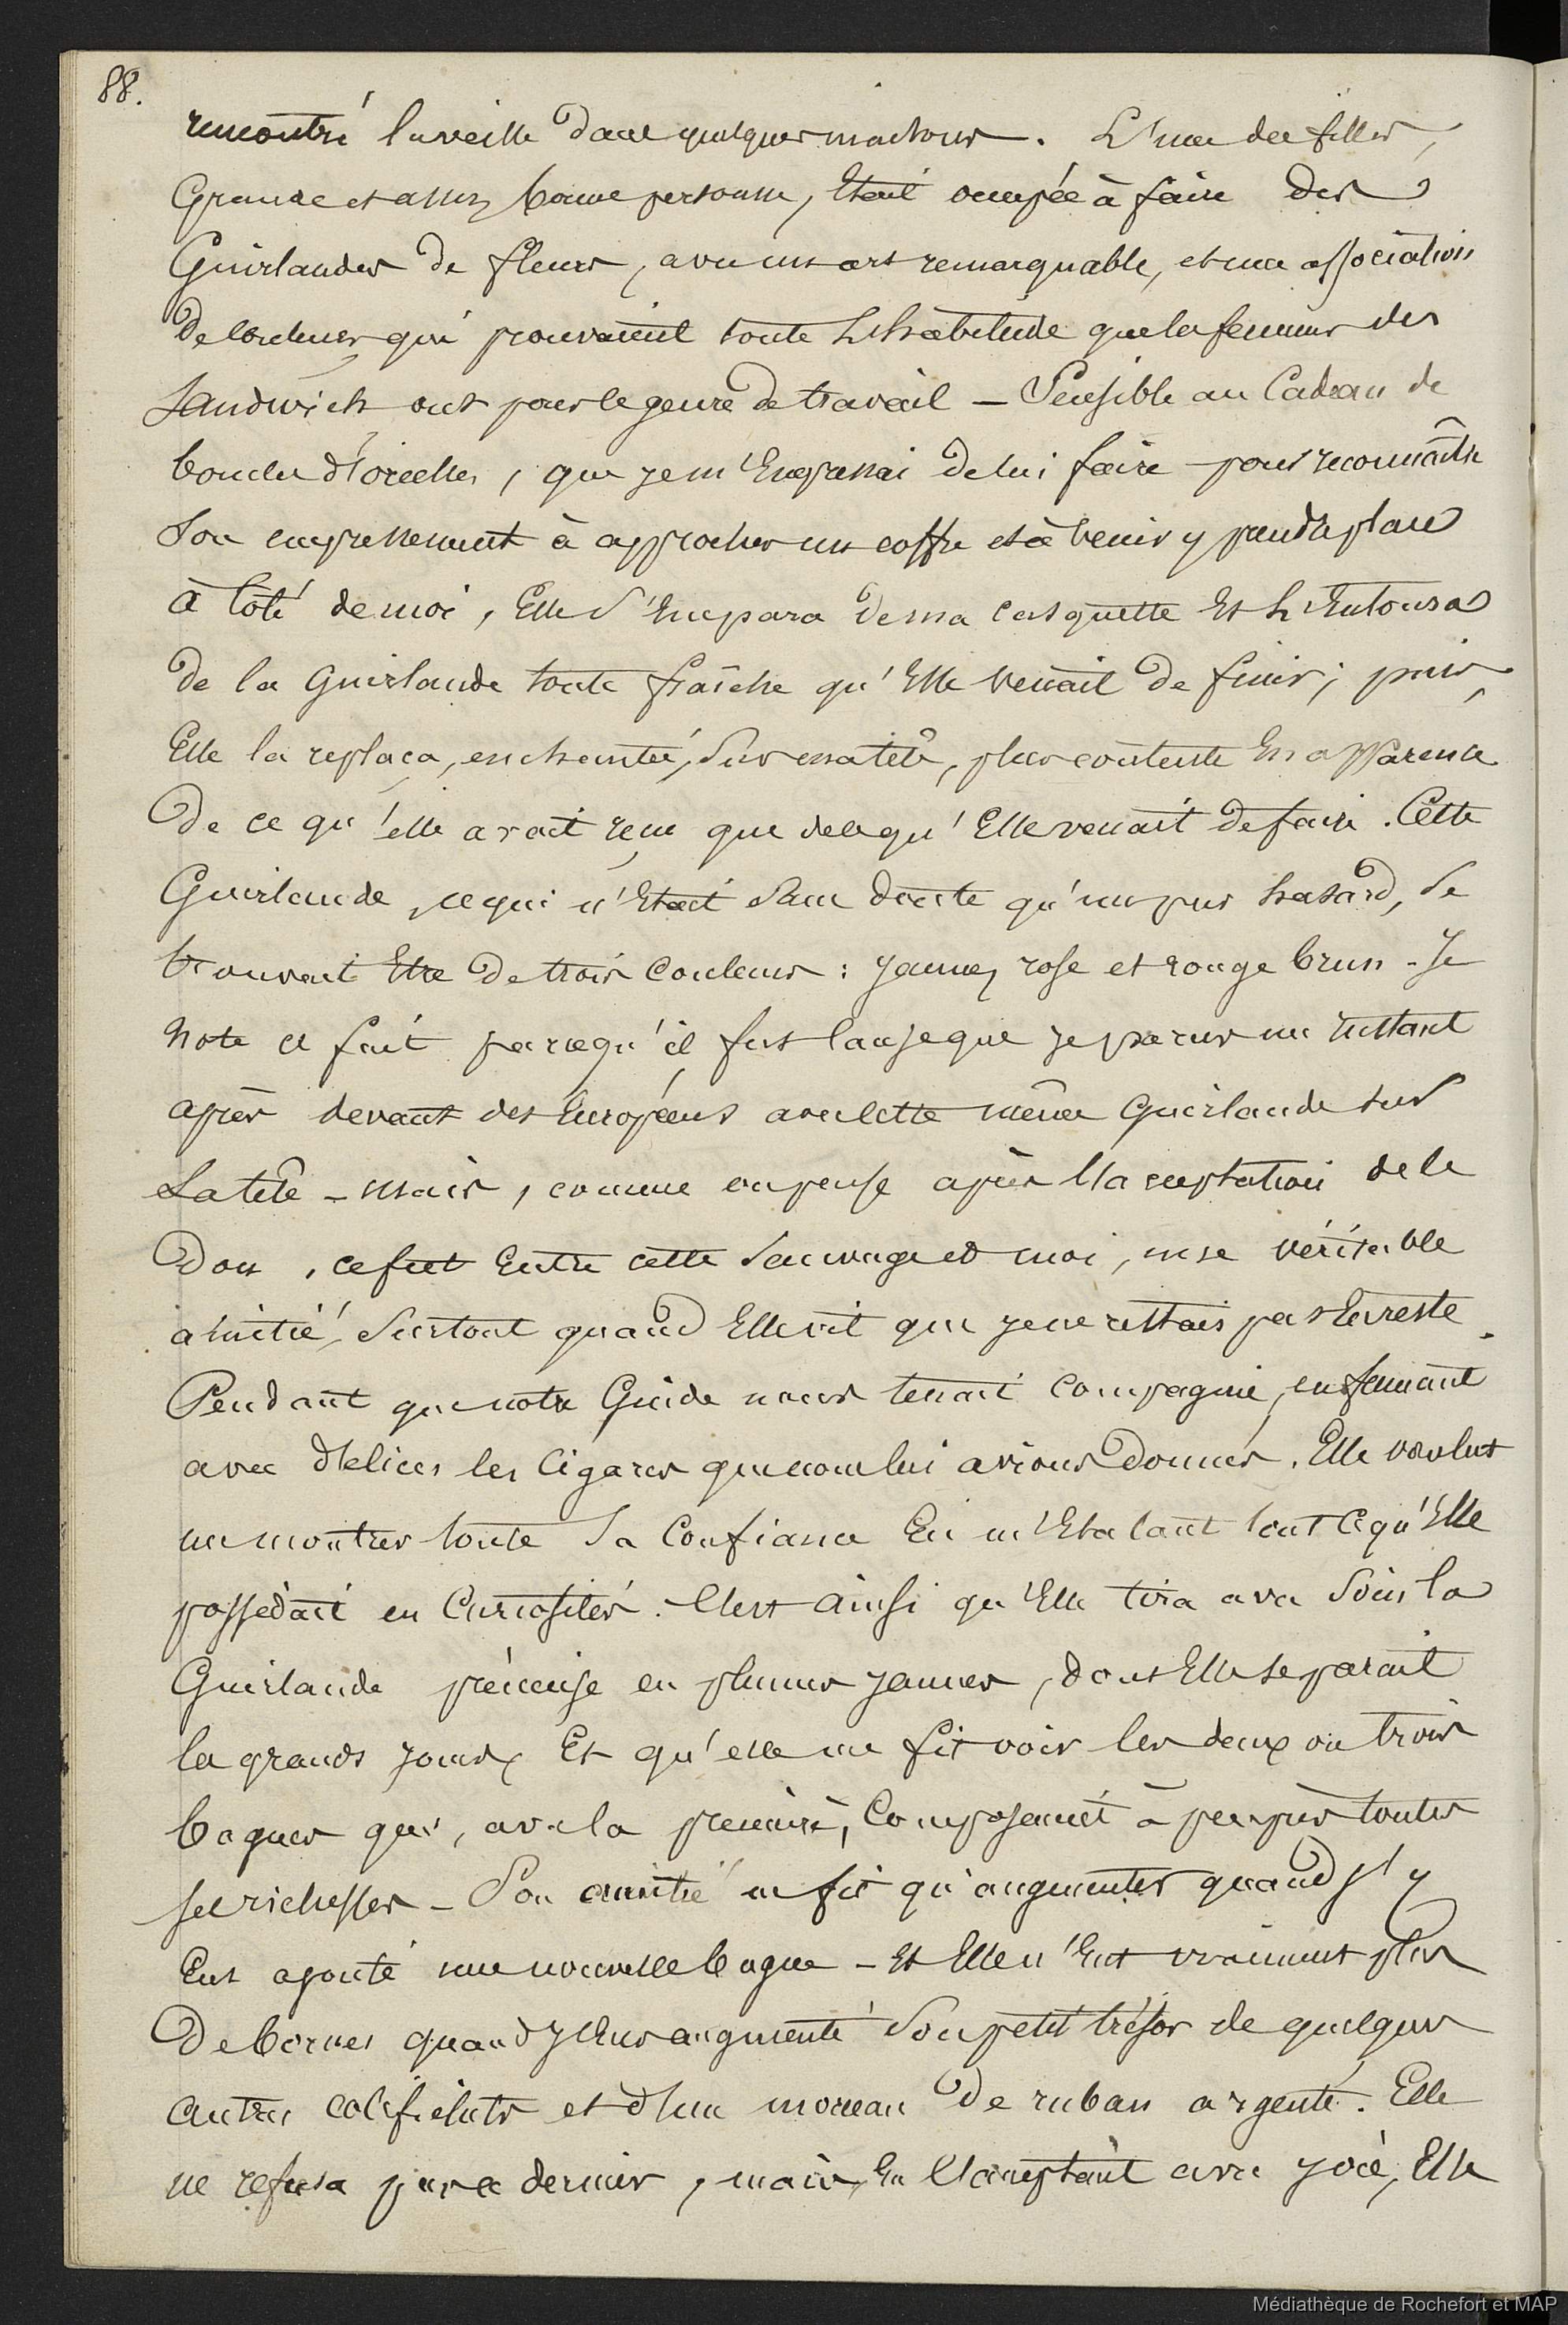 88.
rencontré la veille dans quelques maisons. L'une des filles,
Grande et assez bonne personne, Etait occupée à faire des
Guirlandes de fleurs, avec un art remarquable, et une association
de couleurs qui prouvaient toute L'habitude que les femmes des
Sandwich ont pour le genre de travail — Sensible au Cadeau de
boucles d'oreilles, que je m'Empressai de lui faire pour reconnaître
Son empressement à approcher un coffre et à venir y prendre place
à Côté de moi, Elle S'Empara de ma Casquette Et L'Entoura
de la Guirlande toute fraîche qu'Elle venait de finir; puis,
Elle la replaça, enchantée, Sur ma tête, plus contente En apparence
De ce qu'elle avait reçu que de ce qu'Elle venait de faire. Cette
Guirlande, ce qui n'Etait Sans doute qu'un pur hasard, Se
trouvait Etre De trois Couleurs: jaune, rose et rouge brun - Je
Note ce fait parcequ'il fut Cause que je parus un instant
après devant des Européens avec cette même Guirlande sur
La tête - mais, comme on pense après l'acceptation de le
Don, ce fut Entre cette Sauvage et moi, une véritable
amitié, Surtout quand Elle vit que je ne restais pas En reste.
Pendant que notre Guide nous tenait Compagnie, en fumant
avec délices les Cigares que nous lui avions Donnés, Elle voulut
me montrer toute Sa Confiance En m'Etalant tout ce qu'Elle
possédait en Curiosités. C'est ainsi qu'Elle tira avec Soin la
Guirlande précieuse en plumes jaunes, dont Elle se parait
les grands jours, Et qu'elle me fit voir les deux ou trois
bagues qui, avec la première, Composaient à peu près toutes
ses richesses - Son amitié ne fit qu'augmenter quand j'y
Eus ajouté une nouvelle bague - Et Elle n'Eut vraiment plus
De bornes quand j'Eus augmenté Son petit trésor de quelques
autres colifichets et d'un morceau De ruban argenté. Elle
ne refusa pas ce dernier, mais, En l'acceptant avec joie, Elle
Médiathèque de Rochefort et MAP